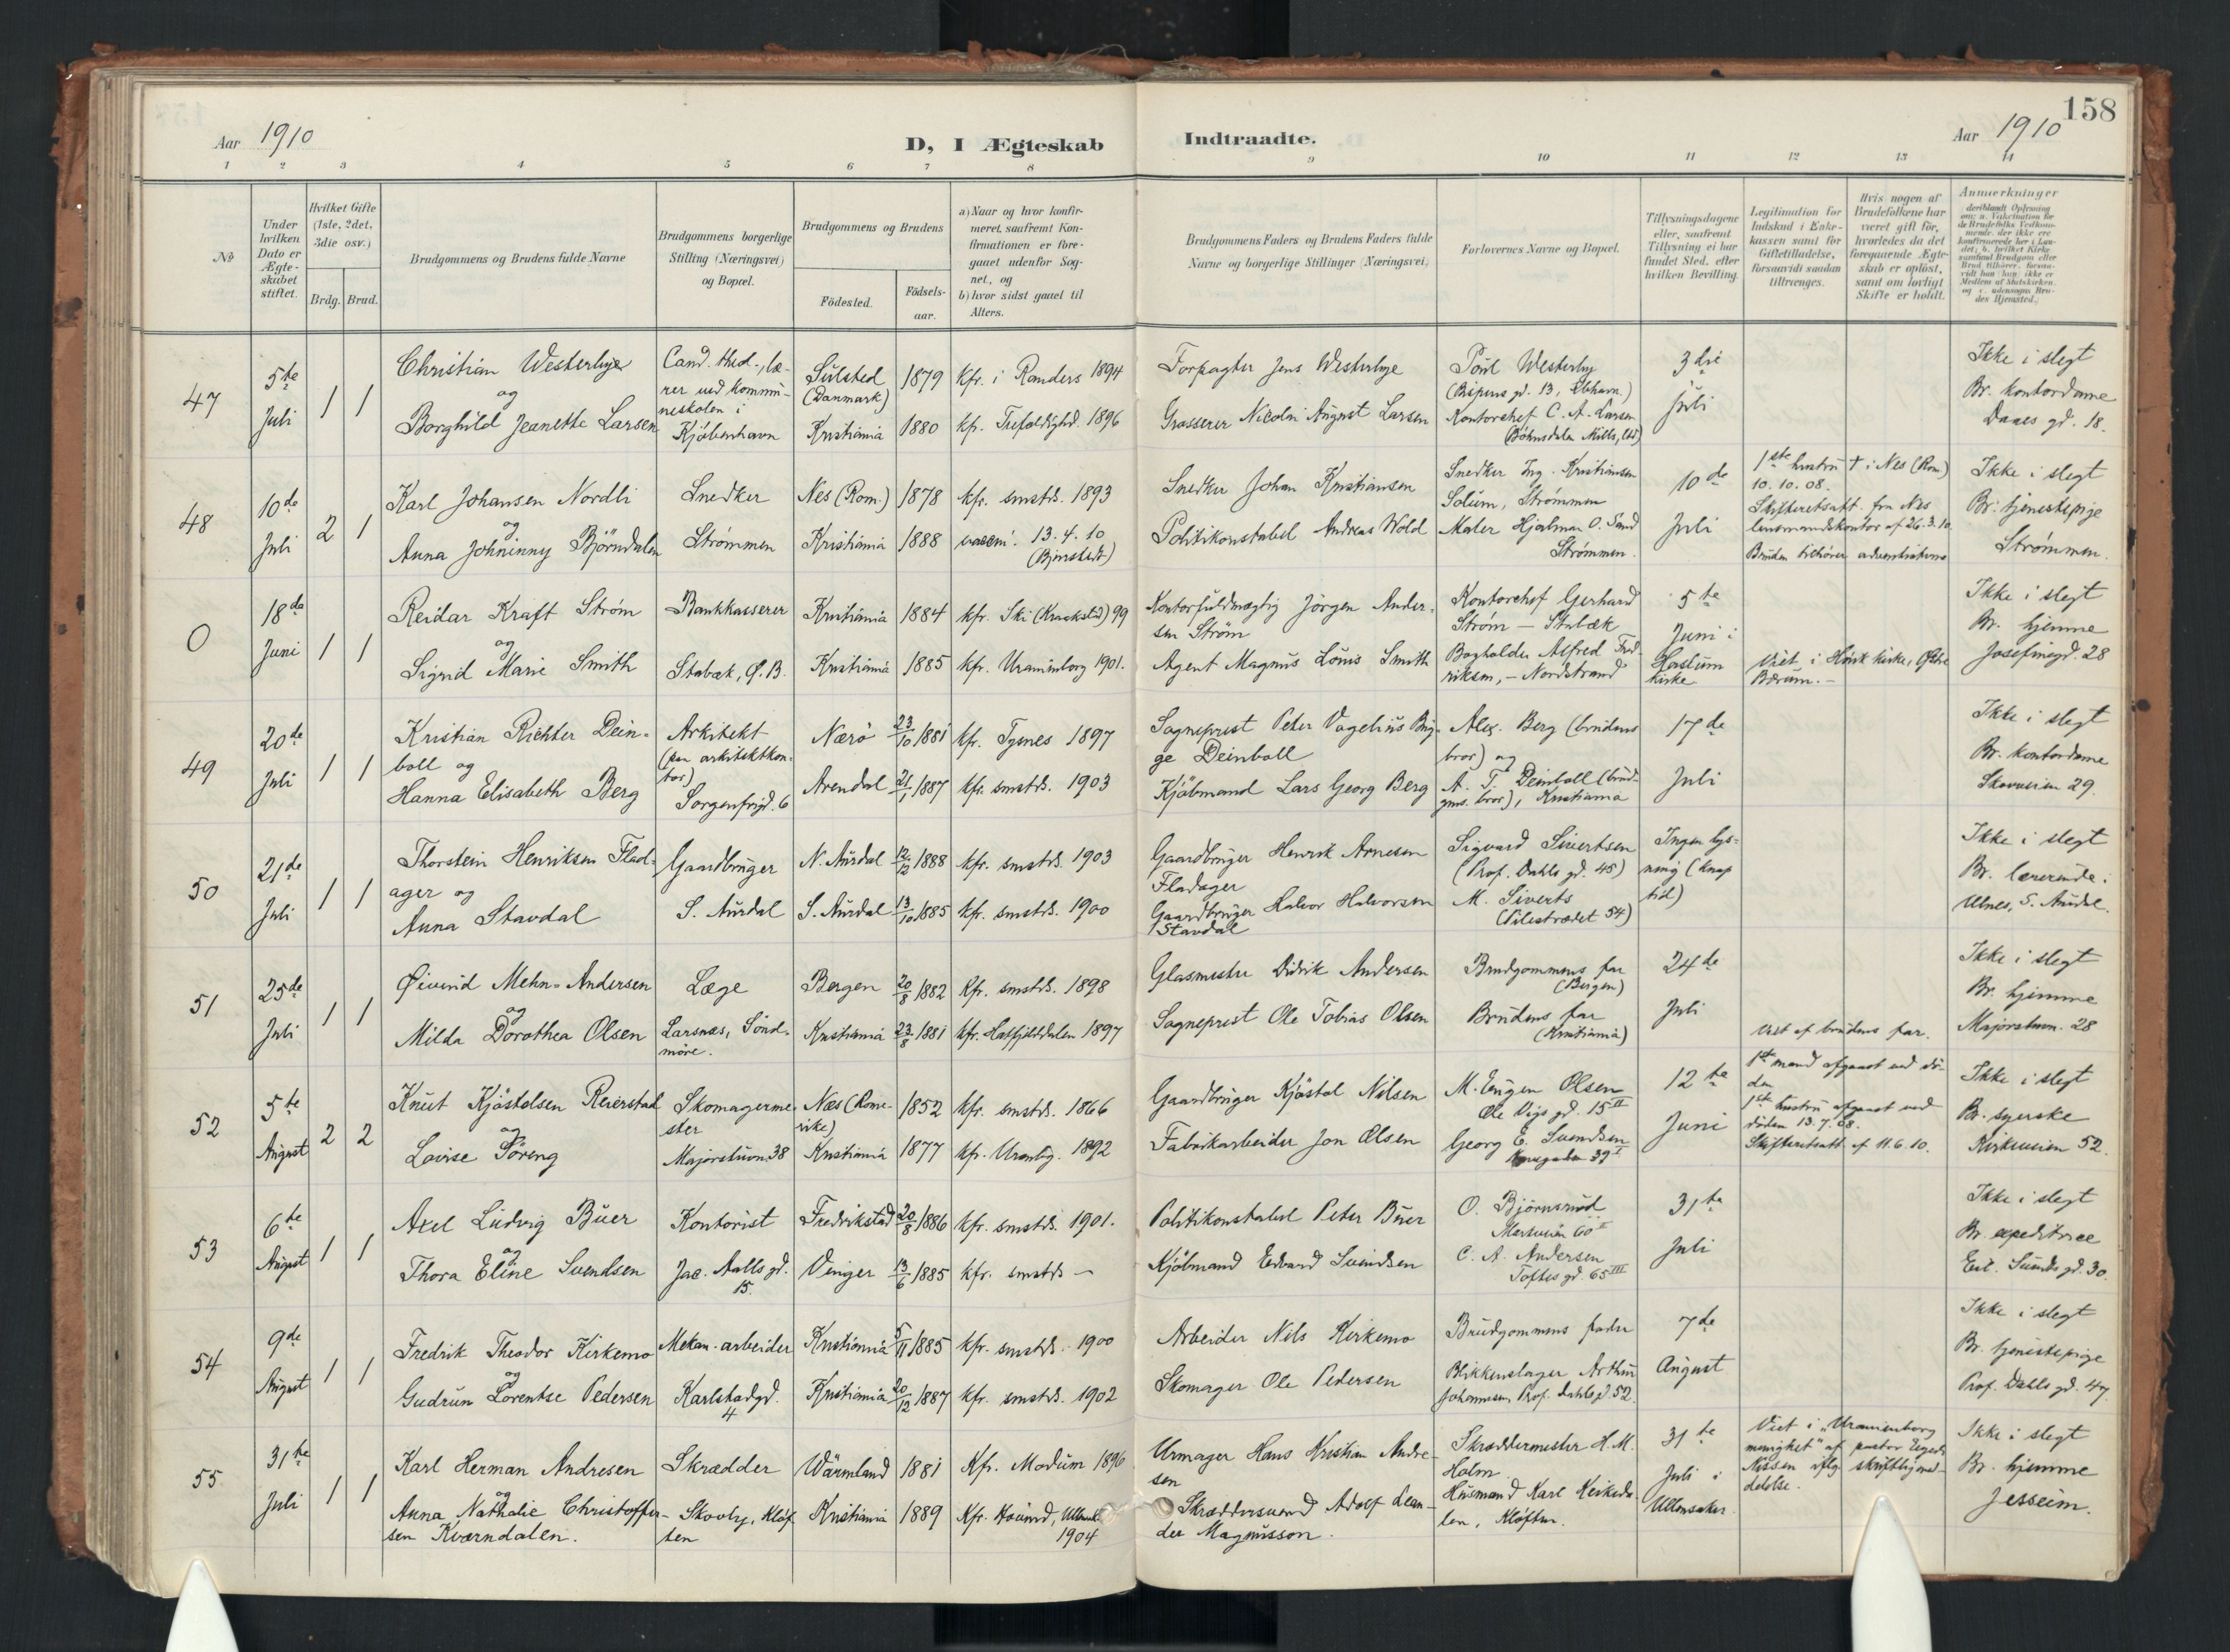 158
Aar 1910
D, I Ægteskab Indtraadte.
Aar 1910
1 2 3 4 5 6 7 8 9 10 11 12 13 14
№
Under hvilken Dato er Ægte-skabet stiftet.
Hvilket Gifte (1ste, 2det, 3die osv.)
Brdg. Brud.
Brudgommens og Brudens fulde Navne
Brudgommens borgerlige Stilling (Næringsvei) og Bopæl.
Brudgommens og Brudens
Födested.
Födsels-aar.
a) Naar og hvor konfir-meret, saafremt Kon-firmationen er fore-gaaet udenfor Sog-net, og
b) hvor sidst gaaet til Alters.
Brudgommens Faders og Brudens Faders fulde Navne og borgerlige Stillinger (Næringsvei)
Forlovernes Navne og Bopæl.
Tillysningsdagene eller, saafremt Tillysning ei har fundet Sted, efter hvilken Bevilling.
Legitimation for Indskud i Enke-kassen samt for Giftetilladelse, forsaavidt saadan tiltrænges.
Hvis nogen af Brudefolkene har været gift för, hvorledes da det foregaaende Ægte-skab er oplöst, samt om lovligt Skifte er holdt.
Anmærkninger
deriblandt Oplysning om: a. Vakcination for de Brudefolks Vedkom-mende, der ikke ere konfirmerede her i Lan-det; b. hvilket Kirke-samfund Brudgom eller Brud tilhörer, forsaa-vidt han (hun) ikke er Medlem af Statskirken, og c. udensogns Bru-des Hjemsted.
47
5te Juli
1 1
Christian Westerbye
og
Borghild Jeanette Larsen
Cand. theol., læ-
rer ved kommu-
neskolen i
Kjøbenhavn
Sulsted
(Danmark)
Kristiania
1879
1880
Kfr. i Randers 1894
kfr. Trefoldighd. 1896
Forpagter Jens Westerbye
Grosserer Nicolai August Larsen
Poul Westerby
Kontorchef C. A. Larsen
3die
Juli
Ikke i slegt
Br. kontordame
Daaes gd. 18.
48
10de Juli
2 1
Karl Johansen Nordli
og
Anna Johninny Björndalen
Snedker
Strømmen
Nes (Rom.)
Kristiania
1878
1888
kfr. smstds. 1893
13.4.10
Snedker Johan Kristiansen
Politikonstabel Andreas Wold
Snedker Ing. Kristiansen
Solum, Strømmen
Maler Hjalmar O. Sand
Strømmen.
10de
Juli
1ste hustru † i Nes (Rom)
10.10.08.
Skifteretsatt. fra Nes
lensmandskontor af 26.3.10
Bruden tilhører adventisterne
Ikke i slegt
Br. tjenestepige
Strømmen.
0
18de Juni
1 1
Reidar Kraft Strøm
og
Sigrid Marie Smith
Bankkasserer
Stabæk, Ø. B.
Kristiania
Kristiania
1884
1885
kfr. Ski (Kraakstad) 99
kfr. Uranienborg 1901.
Kontorfuldmægtig Jörgen Ander-
sen Strøm
Agent Magnus Louis Smith
Kontorchef Gerhard
Strøm – Stabæk
Bogholder Alfred Fred-
riksen, – Nordstrand
5te
Juni i
Haslum
kirke
Viet i Høvik kirke, Østre
Bærum. –
Ikke i slegt
Br. hjemme
Josefinegd. 28
49
20de Juli
1 1
Kristian Richter Dein-
boll og
Hanna Elisabeth Berg
Arkitekt
(paa arkitektkon-
tor)
Sorgenfrigd. 6
Nærö
Arendal
23/10 1881
21/1 1887
kfr. Tysnes 1897
kfr. smstds. 1903
Sogneprest Peter Vogelius Brüg-
ge Deinboll
Kjöbmand Lars Georg Berg
Alex. Berg (brudens
bror) og
A. T. Deinboll (brud-
gms. bror), Kristiania
17de
Juli
Ikke i slegt
Br. kontordame
Skovveien 29.
50
21de Juli
1 1
Thorstein Henriksen Flad-
ager og
Anna Stavdal
Gaardbruger
S. Aurdal
N. Aurdal
S. Aurdal
12/12 1888
13/10 1885
kfr. smstds. 1903
kfr. smstds. 1900
Gaardbruger Henrik Arnesen
Fladager
Gaardbruger Halvor Halvorsen
Stavdal
Sigvard Sivertsen
(Prof. Dahls gd. 45)
M. Siverts
(Pilestrædet 54)
Ingen lys-
ning (knap
tid)
Ikke i slegt
Br. lærerinde i
Ulnes, S. Aurdal.
51
25de Juli
1 1
Øivind Mehn-Andersen
og
Milda Dorothea Olsen
Læge
Larsnæs, Sönd-
möre.
Bergen
Kristiania
20/8 1882
23/8 1881
Kfr. smstds. 1898
kfr. Hatfjelddalen 1897
Glasmester Didrik Andersen
Sogneprest Ole Tobias Olsen
Brudgommens far
(Bergen)
Brudens far
(Kristiania)
24de
Juli
Viet af brudens far.
Ikke i slegt
Br. hjemme
Majorstuvn. 28
52
5te August
2 2
Knut Kjöstolsen Reierstad
og
Lovise Söreng
Skomagerme-
ster
Majorstuvn 38
Næs (Rome-
rike)
Kristiania
1852
1877
kfr. smstds. 1866
kfr. Uranbg. 1892
Gaardbruger Kjöstol Nilsen
Fabrikarbeider Jon Olsen
M. Eugen Olsen
Ole Vigs gd. 15 II
Georg E. Svendsen
12te
Juni
1ste mand afgaaet ved dö-
den
1ste hustru afgaaet ved
döden 13.7.08.
Skifteretsatt. af 11.6.10.
Ikke i slegt
Br. syerske
Kirkeveien 52.
53
6te August
1 1
Axel Ludvig Buer
og
Thora Eline Svendsen
Kontorist
Jac. Aalls gd.
15.
Fredrikstad
Vinger
20/8 1886
13/6 1885
kfr. smstds. 1901.
kfr. smstds –
Politikonstabel Peter Buer
Kjöbmand Edvard Svendsen
O. Björnsrud
C. A. Andersen
Toftes gd. 65 III
31te
Juli
Ikke i slegt
Br. expeditrice
Eil. Sundts gd. 30.
54
9de August
1 1
Fredrik Theodor Kirkemo
og
Gudrun Lorentse Pedersen
Mekan. arbeider
Karlstadgd.
4
Kristiania
Kristiania
5/11 1885
20/12 1887
kfr. smstds. 1900
kfr. smstds. 1902
Arbeider Nils Kirkemo
Skomager Ole Pedersen
Brudgommens fader
Blikkenslager Arthur
Johannesen, Prof. Dahls gd. 52.
7de
August
Ikke i slegt
Br. tjenestepige
Prof. Dahls gd. 47.
55
31te Juli
1 1
Karl Herman Andresen
og
Anna Nathalie Christoffer-
sen Kværndalen.
Skrædder
Skovly, Kløf-
ten
Wärmland
Kristiania
1881
1889
Kfr. Modum 1896
Kfr. Hovind, Ullensak.
1904
Urmager Hans Kristian Andre-
sen
Skræddersvend Adolf Lean-
der Magnusson.
Skræddermester H. M.
Holm
Husmand Karl
Kløften.
31te
Juli i
Ullensaker.
Viet i „Uranienborg
menighet" af pastor
Nissen iflg. skriftlig med-
delelse.
Ikke i slegt
Br. hjemme
Jesseim.